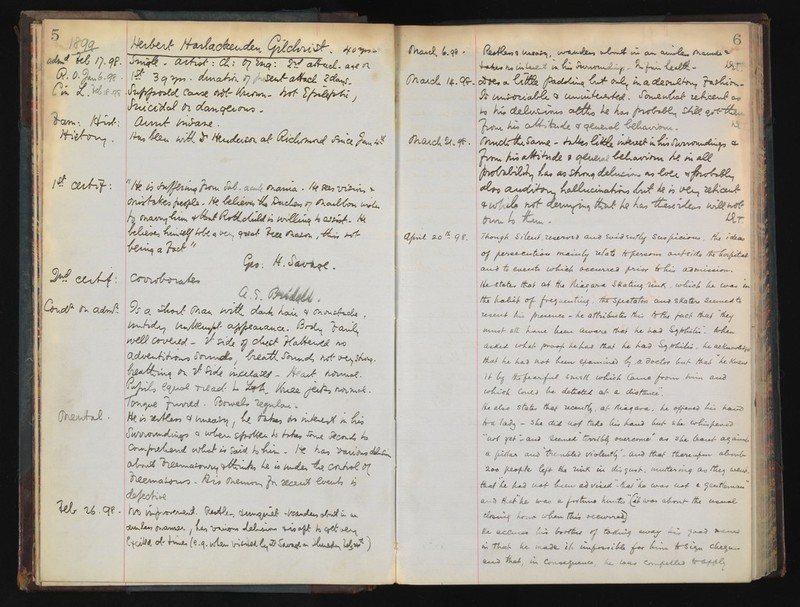 5
1899
Herbert Harlackenden Gilchrist. 40 yrs
admt Feb 17. 98.
Single. Artist: Ch: of Eng: 2nd attack. age on
R.O. Jan 6. 98
1st 39 yrs. duration of present attack 2 days.
Supposed cause not known. Not Epileptic,
Suicidal or dangerous.
Fam: Hist:
Aunt Insane.
History.
Has been with Dr Henderson at Richmond since Jan 4th
1st certif:
"He is suffering from Sub. acute mania. He sees visions &
mistakes people. He believes the Duchess of
by marrying him & that Rothschild is willing to assist. He
believes himself to be a very great Free mason, this not
being a fact"
Geo: H. Savage.
2nd certif:
Corroborates
Condt on admt:
Is a short man with dark hair & moustache,
untidy unkempt appearance. Body fairly
well covered - side of chest flattened no
adventitious sounds, breath sounds not very strong.
breathing on side increased - Heart normal.
Pupils equal react to light, knee jerks normal.
Tongue furred. Bowels regular.
Mental.
He is restless & uneasy, he takes no interest in his
surroundings & when spoken to takes some seconds to
comprehend what is said to him. He has various delusions
about Freemasonry & thinks he is under the control of
Freemasons. His memory for recent events is
defective
Feb 26. 98.
No improvement. Restless, unquiet - wanders about in an
aimless manner, has various delusions & is apt to get very
excited at times (e.g. when visited by Dr Savage on Thursday)
6
March 6. 98.
Restless & uneasy, wanders about in an aimless manner &
takes no interest in his surroundings. In fair health.
March 14. 98.
Does a little painting but only in a desultory fashion.
Is unsociable & uninterested. Somewhat reticent as
to his delusions altho he has probably still got them
from his attitude & general behaviour.
March 21. 98.
Much the same - takes little interest in his surroundings &
from his attitude & general behaviour he in all
probability has as strong delusions as ever & probably
also auditory hallucinations but he is very reticent
& while not denying that he has these ideas will not
own to them.
April 20th 98.
Though silent reserved and evidently suspicious, his ideas
of persecution mainly relate to persons outside the hospital
and to events which occurred prior to his admission.
He states that at the Niagara Skating rink, which he was in
the habit of frequenting, the spectators and skaters seemed to
resent his presence - he attributes this to the fact that "they
must all have been aware that he had Syphilis". When
asked what proof he had that he had Syphilis, he acknowledges
that he had not been examined by a Doctor but that "he knew
it by the fearful smell which came from him and
which could be detected at a distance".
He also states that recently at Niagara, he offered his hand
to a lady - she did not take his hand but she whispered
"not yet" and seemed "terribly overcome" as she leant against
a pillar and "trembled violently" and that thereupon about
200 people left the rink in disgust, muttering as they went
that he had not been advised that "he was not a gentleman"
and that he was a fortune hunter" (it was about the usual
closing hour when this occurred)
He accuses his brother of taking away his good name
in that he made it impossible for him to sign cheques
and that, in consequence, he was compelled to apply